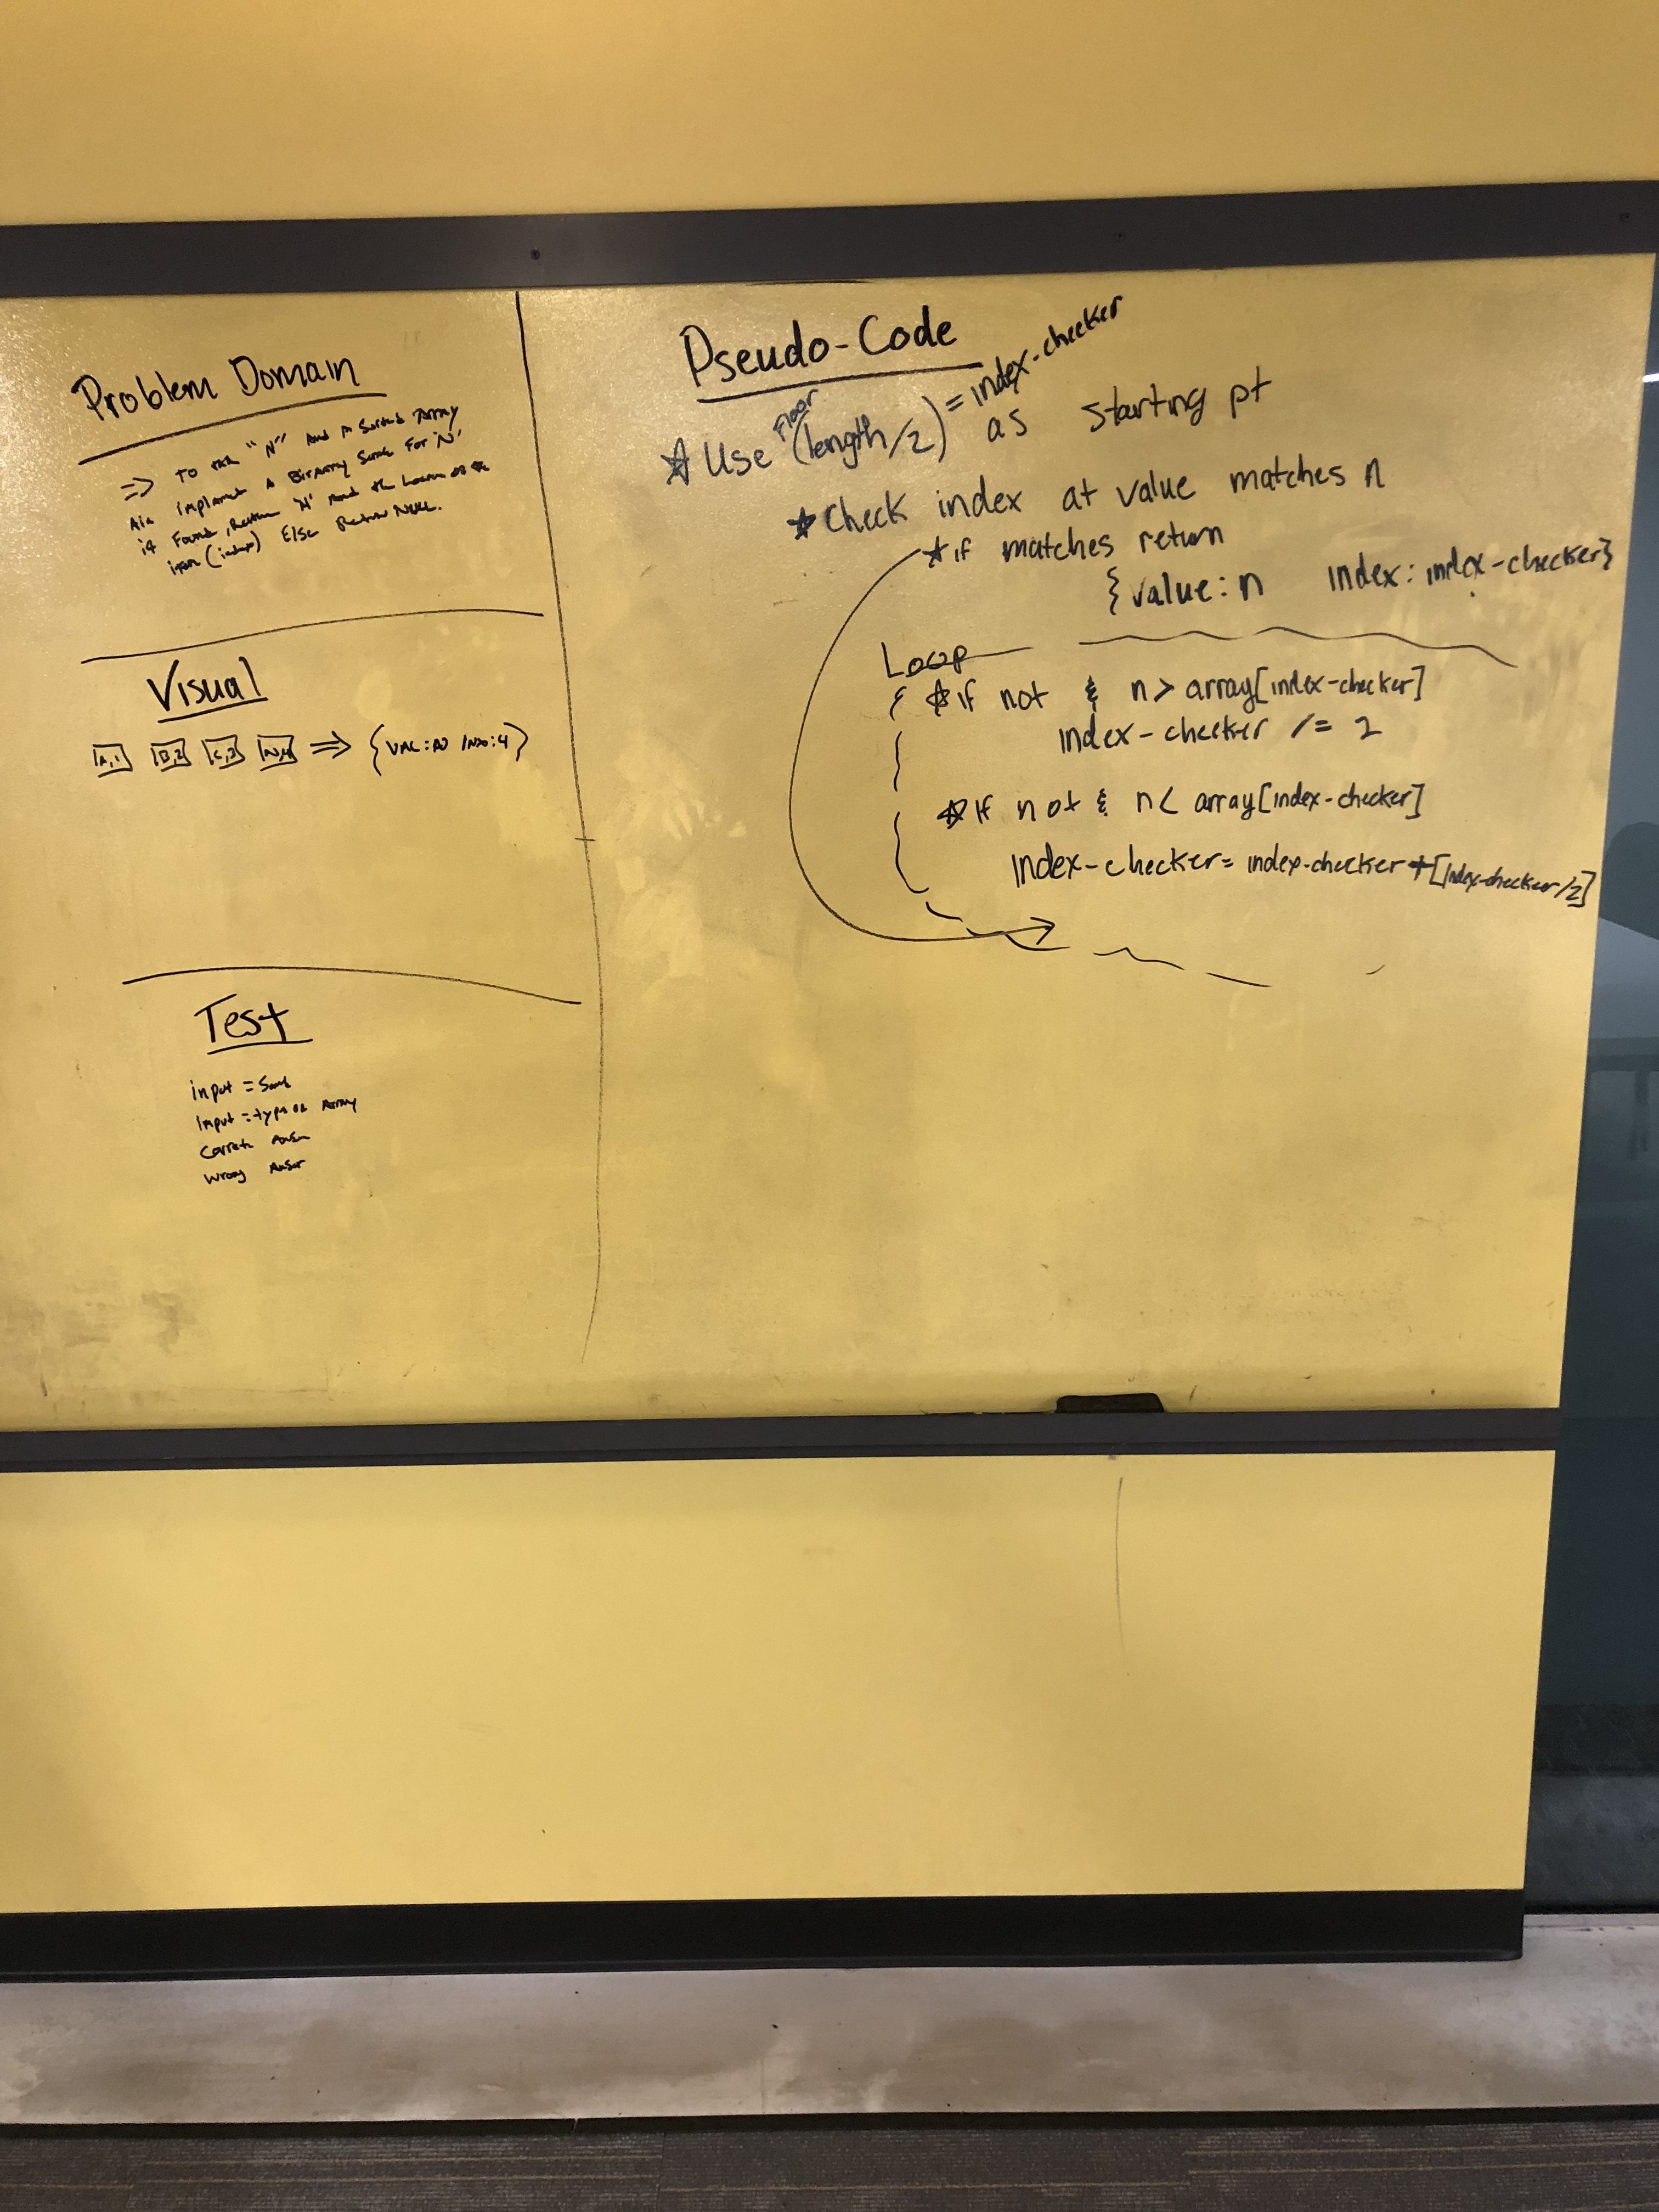 Problem Domain
=> To "N" And A Sorted Array
implement A Binary for 'N'
if Found, Return 'N' And the Location of the
item (index) Else Return NULL.
Visual
[A,1] [B,2] [C,3] [N,4] => {VAL:N IND:4}
Test
input =
input = type of Array
Correct
Wrong
Pseudo-Code
☆ Use Floor (length/2) = index-checker as starting pt
☆ Check index at value matches n
☆ if matches return
{ value: n index: index-checker}
Loop
{ ☆ if not & n > array[index-checker]
index-checker /= 2
☆ if not & n < array[index-checker]
index-checker = index-checker + [index-checker/2]